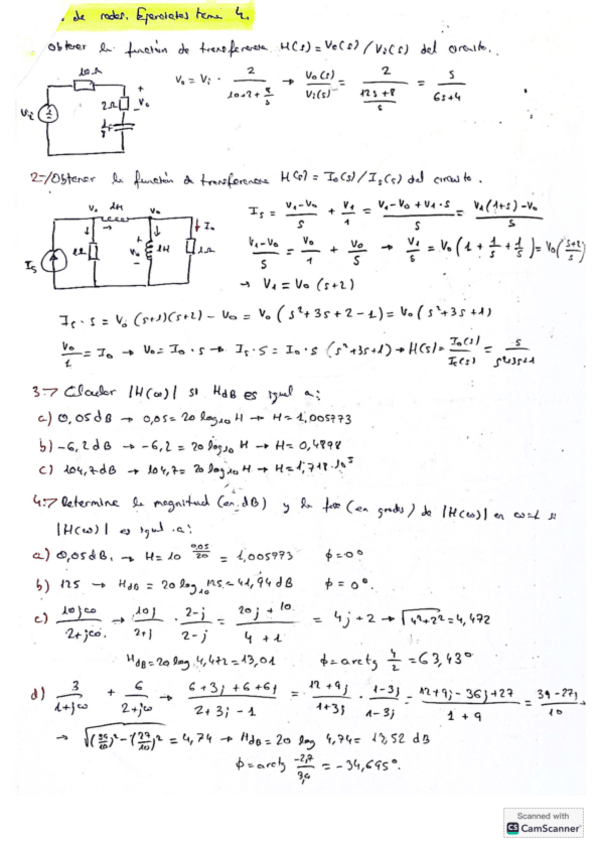 . de redes. Ejercicios tema 4.
Obtener la función de transferencia H(s) = Vo(s) / Vi(s) del circuito.
10Ω
2Ω
Vo
Vi
Vo = Vi · 2 / (10+2+8/s) → Vo(s)/Vi(s) = 2 / ((12s+8)/s) = s / (6s+4)
2-/ Obtener la función de transferencia H(s) = Io(s) / Is(s) del circuito.
1H
Vo
Io
1Ω
Vo
1H
1Ω
Is
Is = (V1-Vo)/s + V1/1 = (V1-Vo+V1·s)/s = (V1(1+s)-Vo)/s
(V1-Vo)/s = Vo/1 + Vo/s → V1/s = Vo(1+1/s+1/s) = Vo((s+2)/s)
→ V1 = Vo (s+2)
Is·s = Vo (s+1)(s+2) - Vo = Vo (s²+3s+2-1) = Vo (s²+3s+1)
Vo/1 = Io → Vo = Io·s → Is·s = Io·s (s²+3s+1) → H(s) = Io(s)/Is(s) = s/(s²+3s+1)
3-/ Calcular |H(ω)| si HdB es igual a:
a) 0,05dB → 0,05 = 20 log₁₀ H → H = 1,005773
b) -6,2dB → -6,2 = 20 log₁₀ H → H = 0,4898
c) 104,7dB → 104,7 = 20 log₁₀ H → H = 1,718·10⁵
4-/ Determine la magnitud (en dB) y la fase (en grados) de |H(ω)| en ω=1 si
|H(ω)| es igual a:
a) 0,05dB. → H = 10^(0,05/20) = 1,005773 ϕ = 0°
b) 125 → HdB = 20 log₁₀ 125 = 41,94 dB ϕ = 0°.
c) 10jω/(2+jω) → 10j/(2+j) · (2-j)/(2-j) = (20j+10)/(4+1) = 4j+2 → √(4²+2²) = 4,472
HdB = 20 log 4,472 = 13,01 ϕ = arctg 4/2 = 63,43°
d) 3/(1+jω) + 6/(2+jω) → (6+3j+6+6j)/(2+3j-1) = (12+9j)/(1+3j) · (1-3j)/(1-3j) = (12+9j-36j+27)/(1+9) = (39-27j)/10
→ √((39/10)²-(27/10)²) = 4,74 → HdB = 20 log 4,74 = 13,52 dB
ϕ = arctg -2,7/3,9 = -34,695°.
Scanned with
CS CamScanner